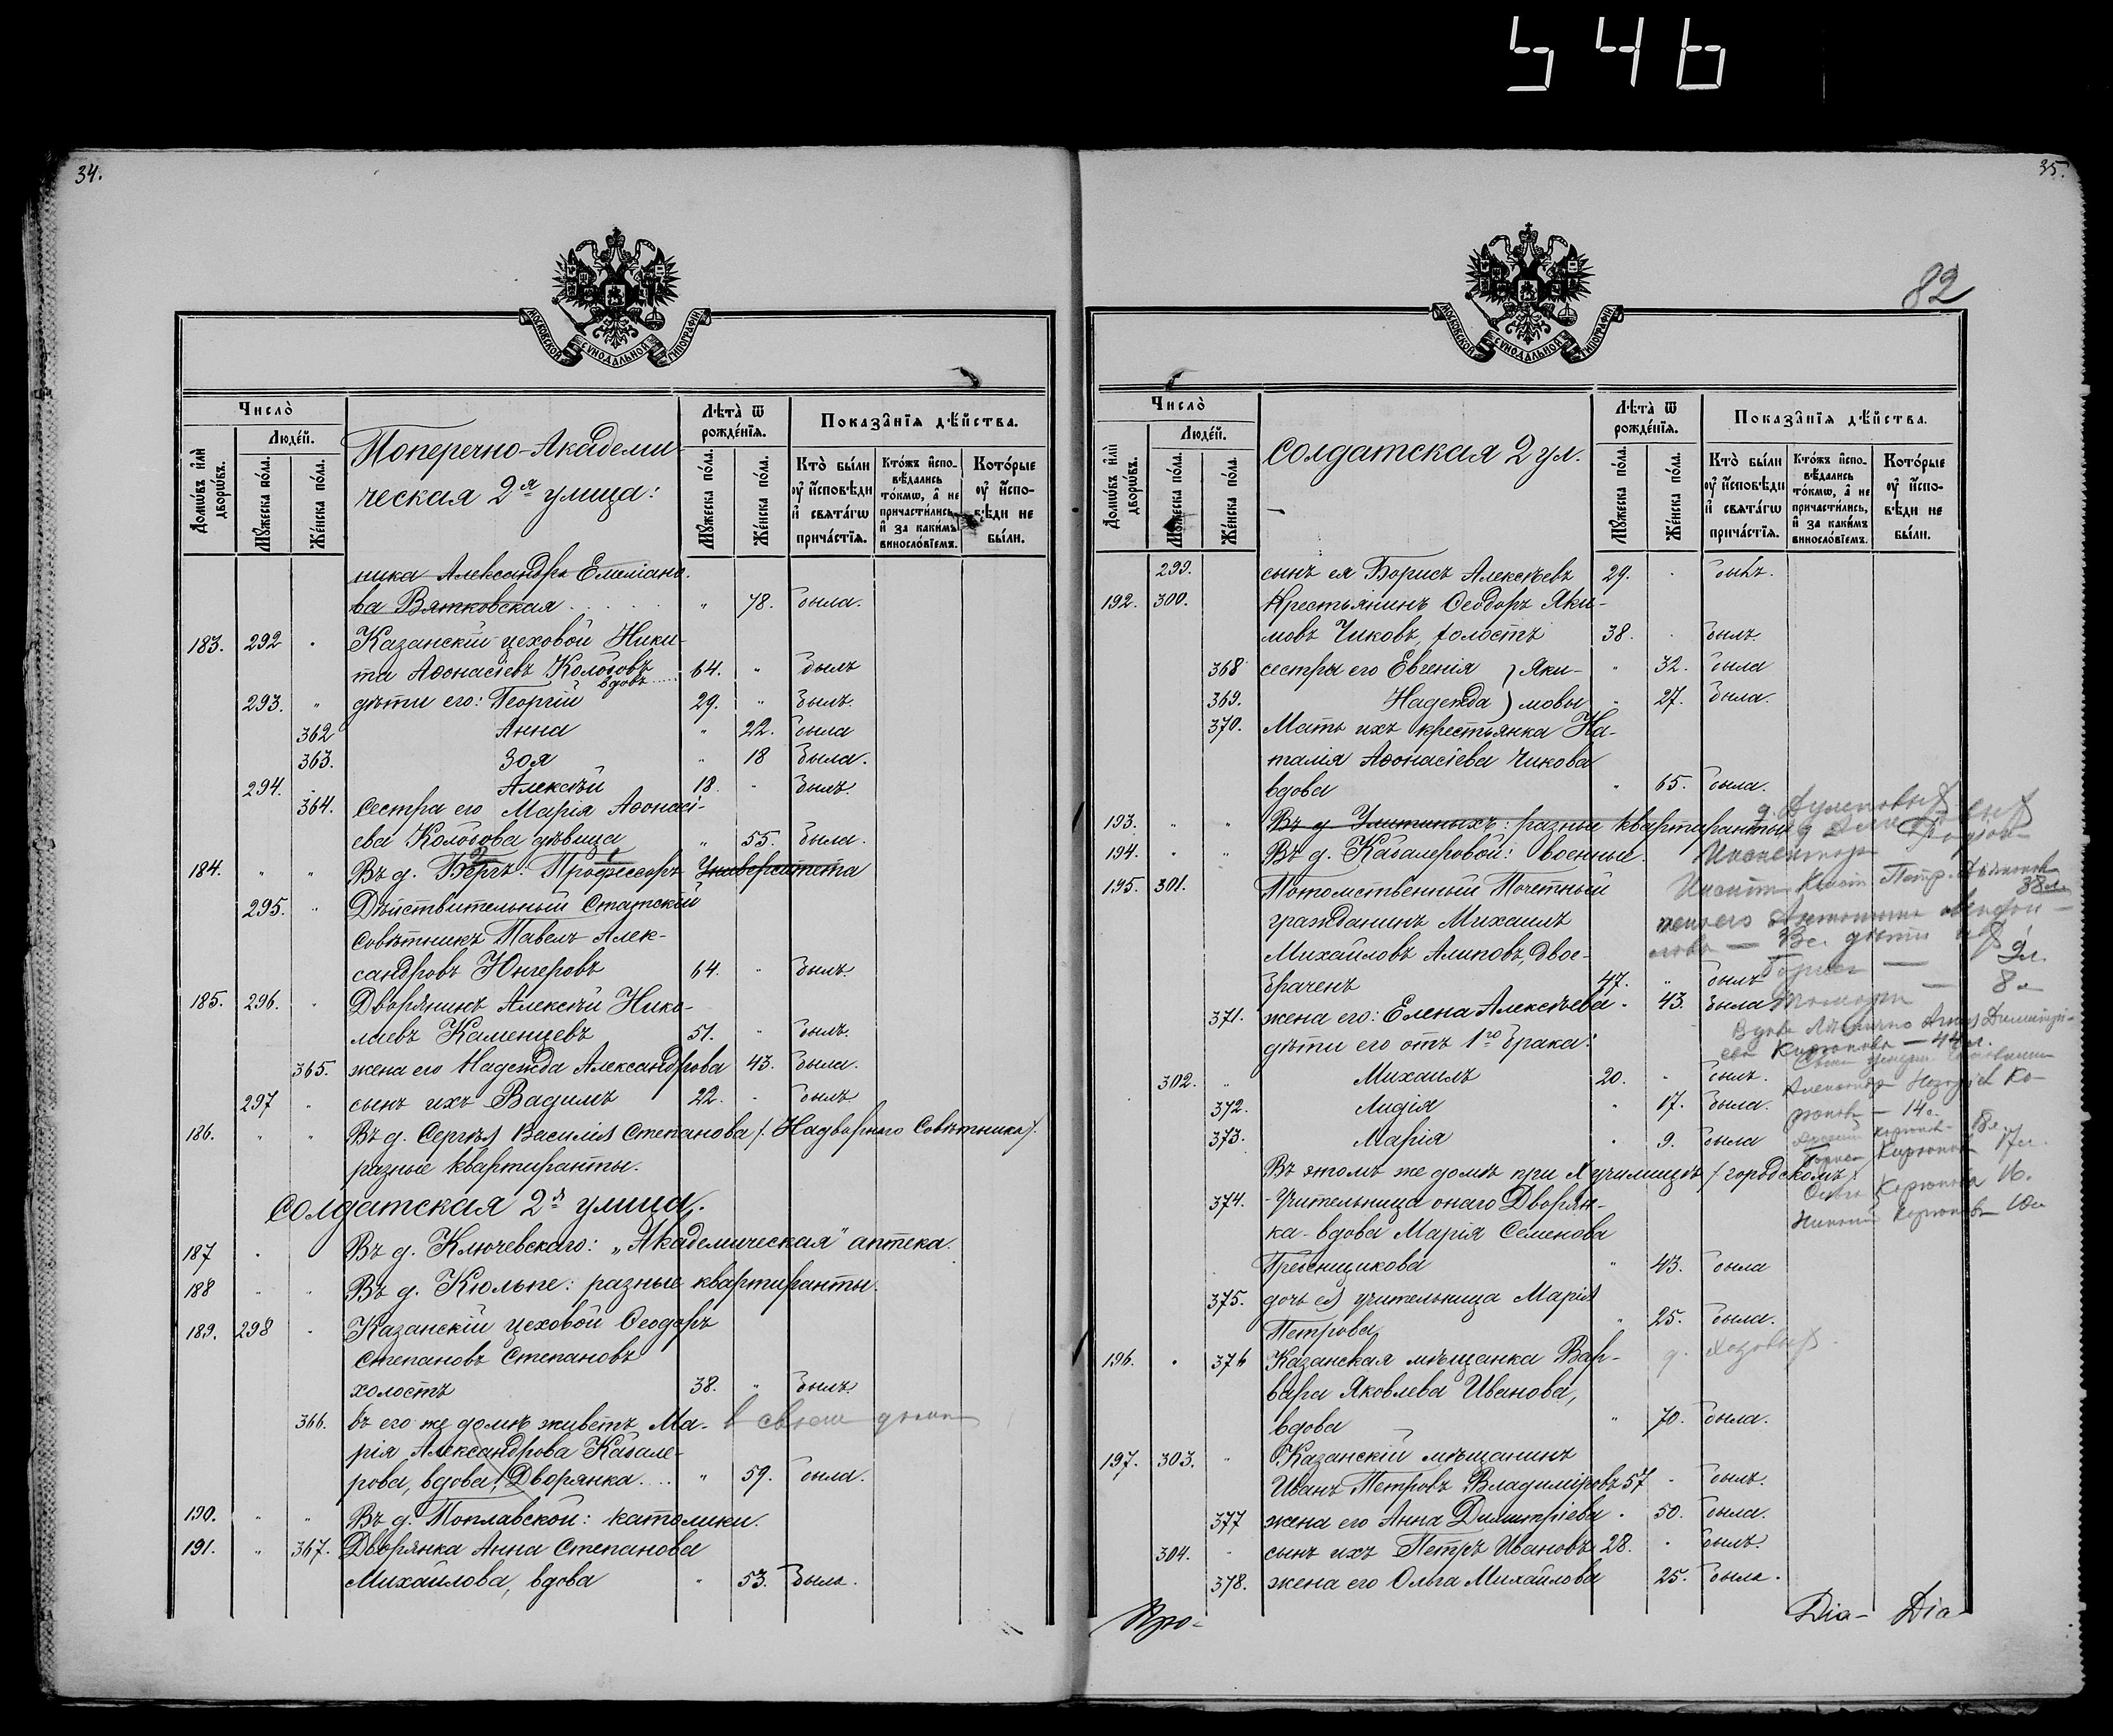 546
34.
МОСКОВСКОЙ СУНОДАЛЬНОЙ ТИПОГРАФІИ
Число̀
Люде́й.
Домѡ́въ и҆лѝ дворѡ́въ.
Мꙋ́жеска по́ла.
Же́нска по́ла.
Поперечно-Академи-
ческая 2ая улица:
Лѣ́та ѿ рожде́нїя.
Мꙋ́жеска по́ла.
Же́нска по́ла.
Показа̑нїѧ дѣ́йства.
Кто̀ бы́ли ᲂу҆ и҆сповѣ́ди и҆ свѧта́гѡ прича́стїѧ.
Кто́жъ и҆сповѣ́дались то́кмѡ, а҆ не причасти́лись, и҆ за каки́мъ винословїемъ.
Кото́рые ᲂу҆ и҆сповѣ́ди не бы́ли.
ника Александра Емеліано-
ва Вятковская . . . . . " 78. была.
183. 292 " Казанскій цеховой Ники-
та Аѳонасіевъ Кологовъ вдовъ 64. " былъ
293. " дѣти его: Георгій 29. " былъ.
362 Анна " 22. была
363. Зоя " 18 была.
294. Алексѣй 18. " былъ.
364. Сестра его Марія Аѳонасі-
ева Кологова дѣвица " 55. была.
184. " " Въ д. Бергъ: Профессоръ Университета
295. " Дѣйствительный Статскій
Совѣтникъ Павелъ Алек-
сандровъ Юнгеровъ 64. " былъ.
185. 296. " Дворянинъ Алексѣй Нико-
лаевъ Каменцевъ 51. " былъ.
365. жена его Надежда Александрова 43. была.
297 " сынъ ихъ Вадимъ 22. " былъ
186. " " Въ д. Сергѣя Василія Степанова /: Надворнаго Совѣтника/:
разные квартиранты.
Солдатская 2я улица.
187 " Въ д. Ключевскаго: „Академическая" аптека.
188 " " Въ д. Кюльпе: разные квартиранты.
189. 298 " Казанскій цеховой Ѳеодоръ
Степановъ Степановъ
холостъ 38. " былъ.
366. въ его же домѣ живетъ Ма- в своем доме
рія Александрова Кавале-
рова, вдова, Дворянка.... " 59. была.
190. " " Въ д. Поплавской: католики.
191. " 367. Дворянка Анна Степанова
Михайлова, вдова " 53. была.
35.
82
МОСКОВСКОЙ СУНОДАЛЬНОЙ ТИПОГРАФІИ
Число̀
Люде́й.
Домѡ́въ и҆лѝ дворѡ́въ.
Мꙋ́жеска по́ла.
Же́нска по́ла.
Солдатская 2 ул.
Лѣ́та ѿ рожде́нїя.
Мꙋ́жеска по́ла.
Же́нска по́ла.
Показа̑нїѧ дѣ́йства.
Кто̀ бы́ли ᲂу҆ и҆сповѣ́ди и҆ свѧта́гѡ прича́стїѧ.
Кто́жъ и҆сповѣ́дались то́кмѡ, а҆ не причасти́лись, и҆ за каки́мъ винословїемъ.
Кото́рые ᲂу҆ и҆сповѣ́ди не бы́ли.
299. сынъ ея Борисъ Алексѣевъ 29. " былъ.
192. 300. Крестьянинъ Ѳеодоръ Яки-
мовъ Чиковъ, холостъ 38. " былъ
368 сестры его Евгенія } Яки- " 32. была
369. Надежда } мовы " 27. была.
370. Мать ихъ крестьянка На-
талія Аѳонасіева Чикова
вдова " 65. была.
193. " " Въ д. Улитиныхъ: разные квартиранты
194. " " Въ д. Кавалеровой: военные.
195. 301. Потомственный Почетный
гражданинъ Михаилъ
Михайловъ Алиповъ, двое-
браченъ 47. " былъ
371. жена его: Елена Алексѣева " 43. была
дѣти его отъ 1го брака:
302. " Михаилъ 20. " былъ.
372. Лидія " 17. была.
373. Марія " 9. была
Въ этомъ же домѣ при училищѣ /городскомъ/:
374. Учительница онаго Дворян-
ка-вдова Марія Семенова
Гребенщикова " 43. была
375. дочь ея учительница Марія
Петрова " 25. была.
196. " 376 Казанская мѣщанка Вар-
вара Яковлева Иванова,
вдова " 70. была.
197. 303. " Казанскій мѣщанинъ
Иванъ Петровъ Владиміровъ 57 " былъ.
377 жена его Анна Димитріева " 50. была.
304. " сынъ ихъ Петръ Ивановъ 28. " былъ.
378. жена его Ольга Михайлова 25. была.
Дiа- Дiа-